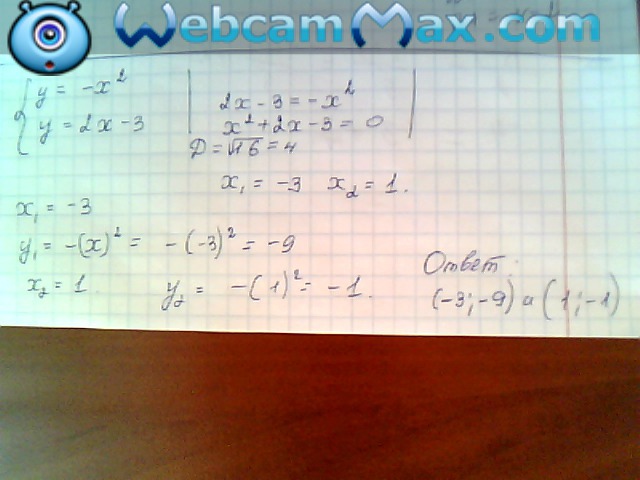 WebcamMax.com
{ y = -x²
y = 2x-3
2x-3 = -x²
x²+2x-3 = 0
D = √16 = 4
x₁ = -3 x₂ = 1.
x₁ = -3
y₁ = -(x)² = -(-3)² = -9
x₂ = 1. y₂ = -(1)² = -1.
Ответ:
(-3;-9) и (1;-1)